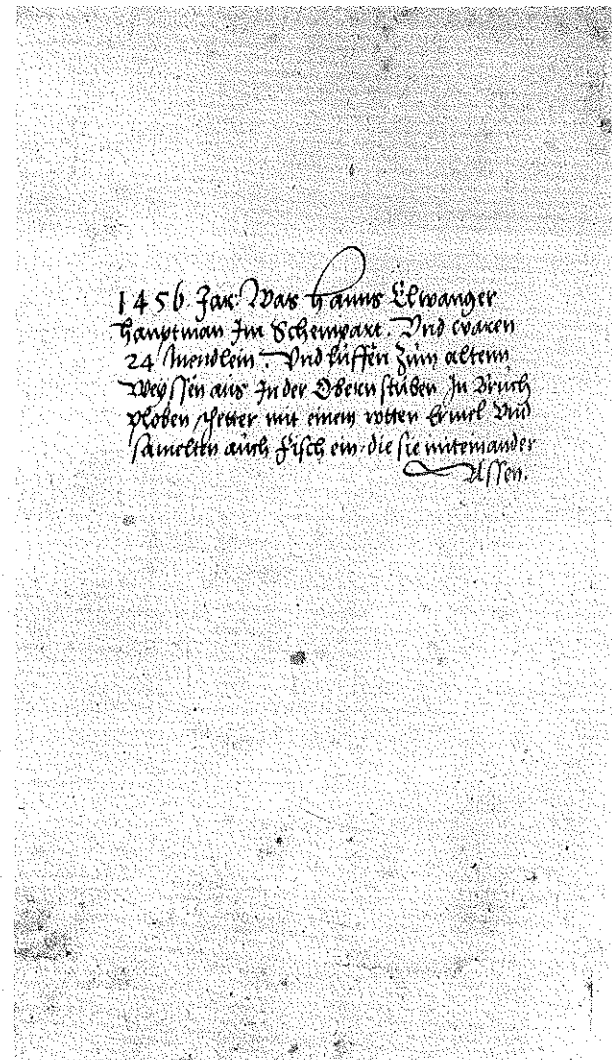 1456 Jar. Was Hanns Elwanger
Hauptman Im Schempart. Vnd waren
24 Mendlein. Vnd luffen Zum altenn
Weyssen aus In der Obern stuben In
ploben mit einem rotten Ermel Vnd
samelten auch Fisch ein. die sie miteinander
Assen.